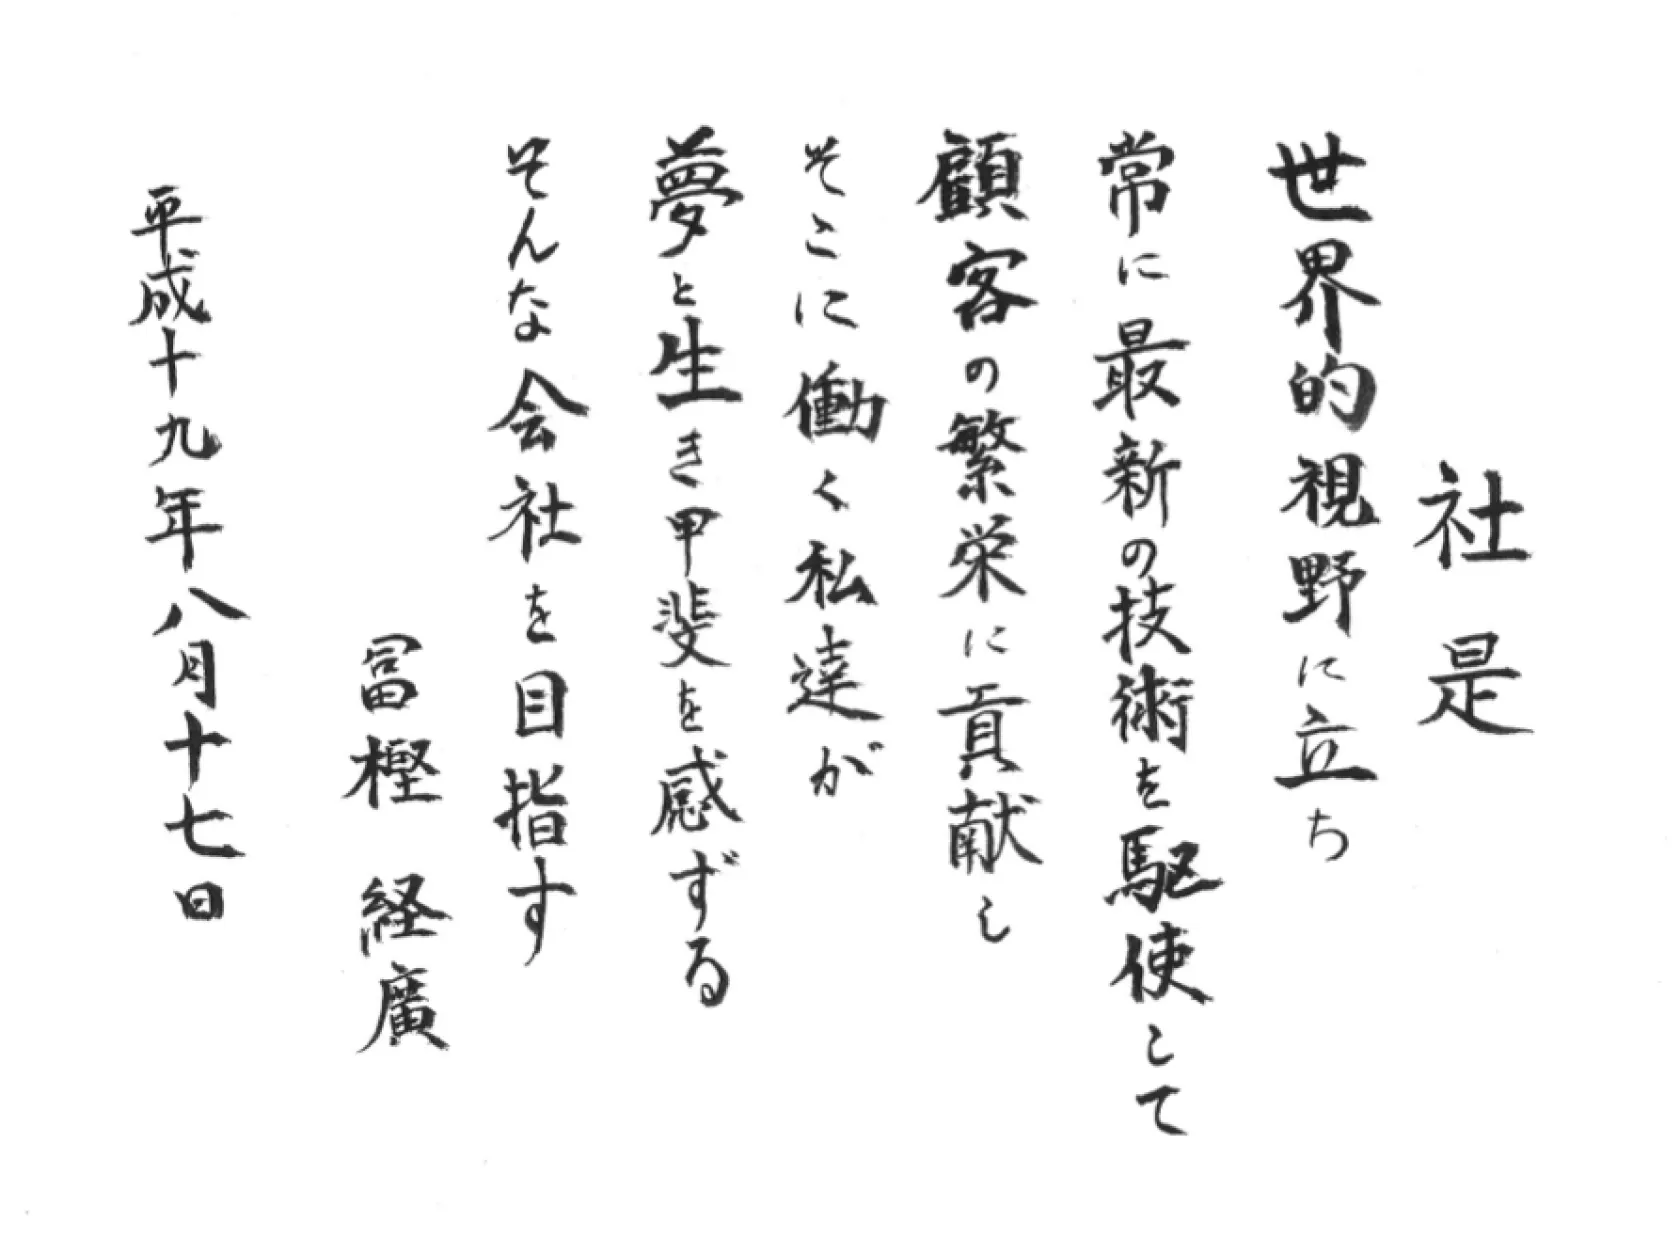 社是
世界的視野に立ち
常に最新の技術を駆使して
顧客の繁栄に貢献し
そこに働く私達が
夢と生き甲斐を感ずる
そんな会社を目指す
冨樫 経廣
平成十九年八月十七日